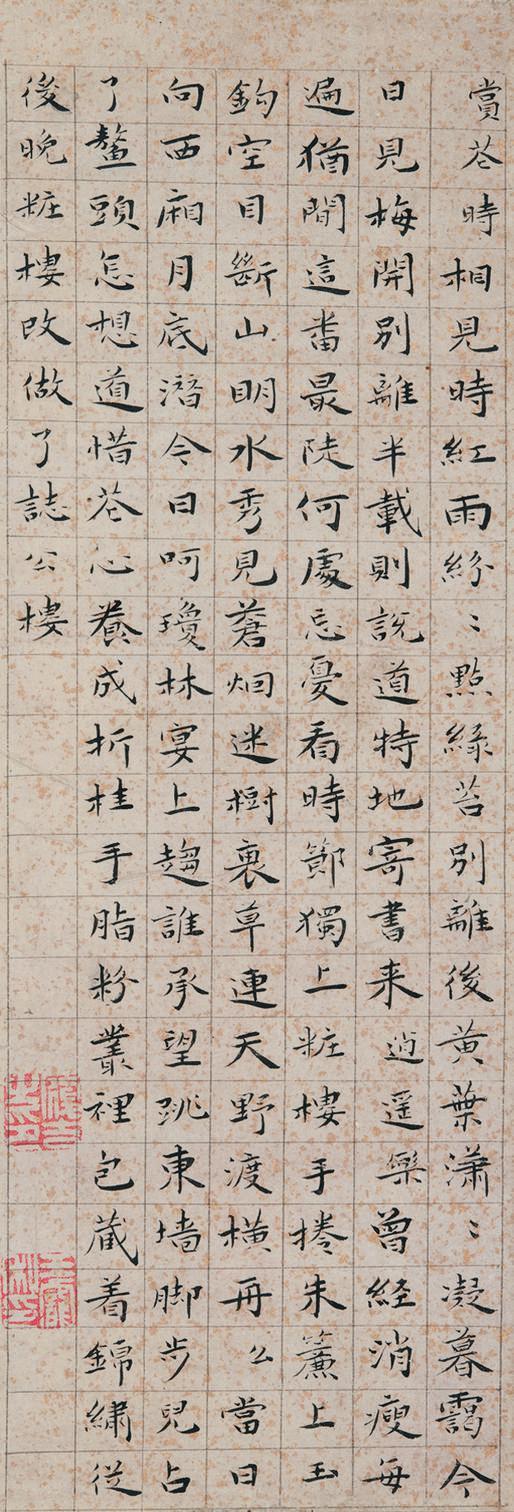 賞花時相見時紅雨紛〻點緑苔別離後黄葉瀟〻凝暮靄今
日見梅開別離半載則說道特地寄書来逍遥樂曾経消瘦每
遍猶閒這畨最陡何處忘憂看時節獨上粧樓手捲朱簾上玉
鈎空目斷山明水秀見蒼烟迷樹衰草連天野渡橫舟么當日
向西廂月底潛今日呵瓊林宴上搊誰承望跳東墻脚步兒占
了鰲頭怎想道惜花心養成折桂手脂粉叢裡包藏着錦繡從
後晚粧樓改做了誌公樓